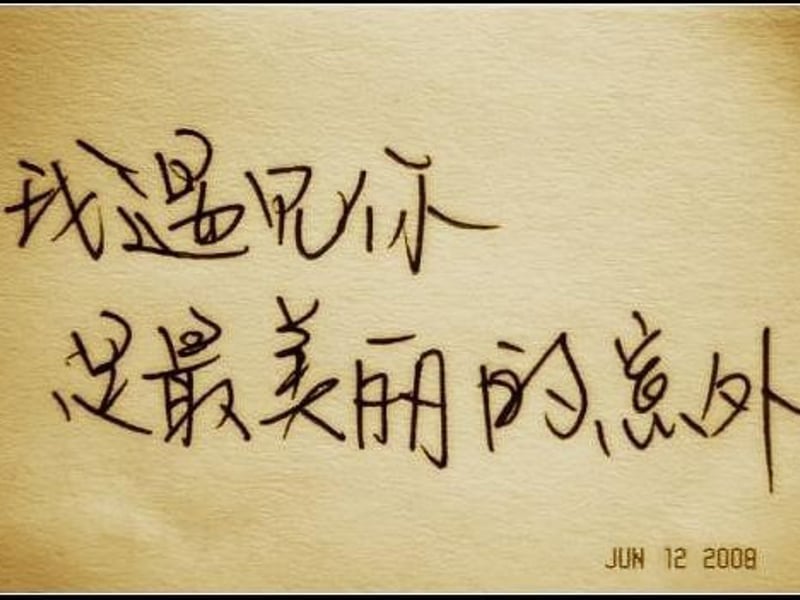 我遇见你
是最美丽的意外
JUN 12 2008